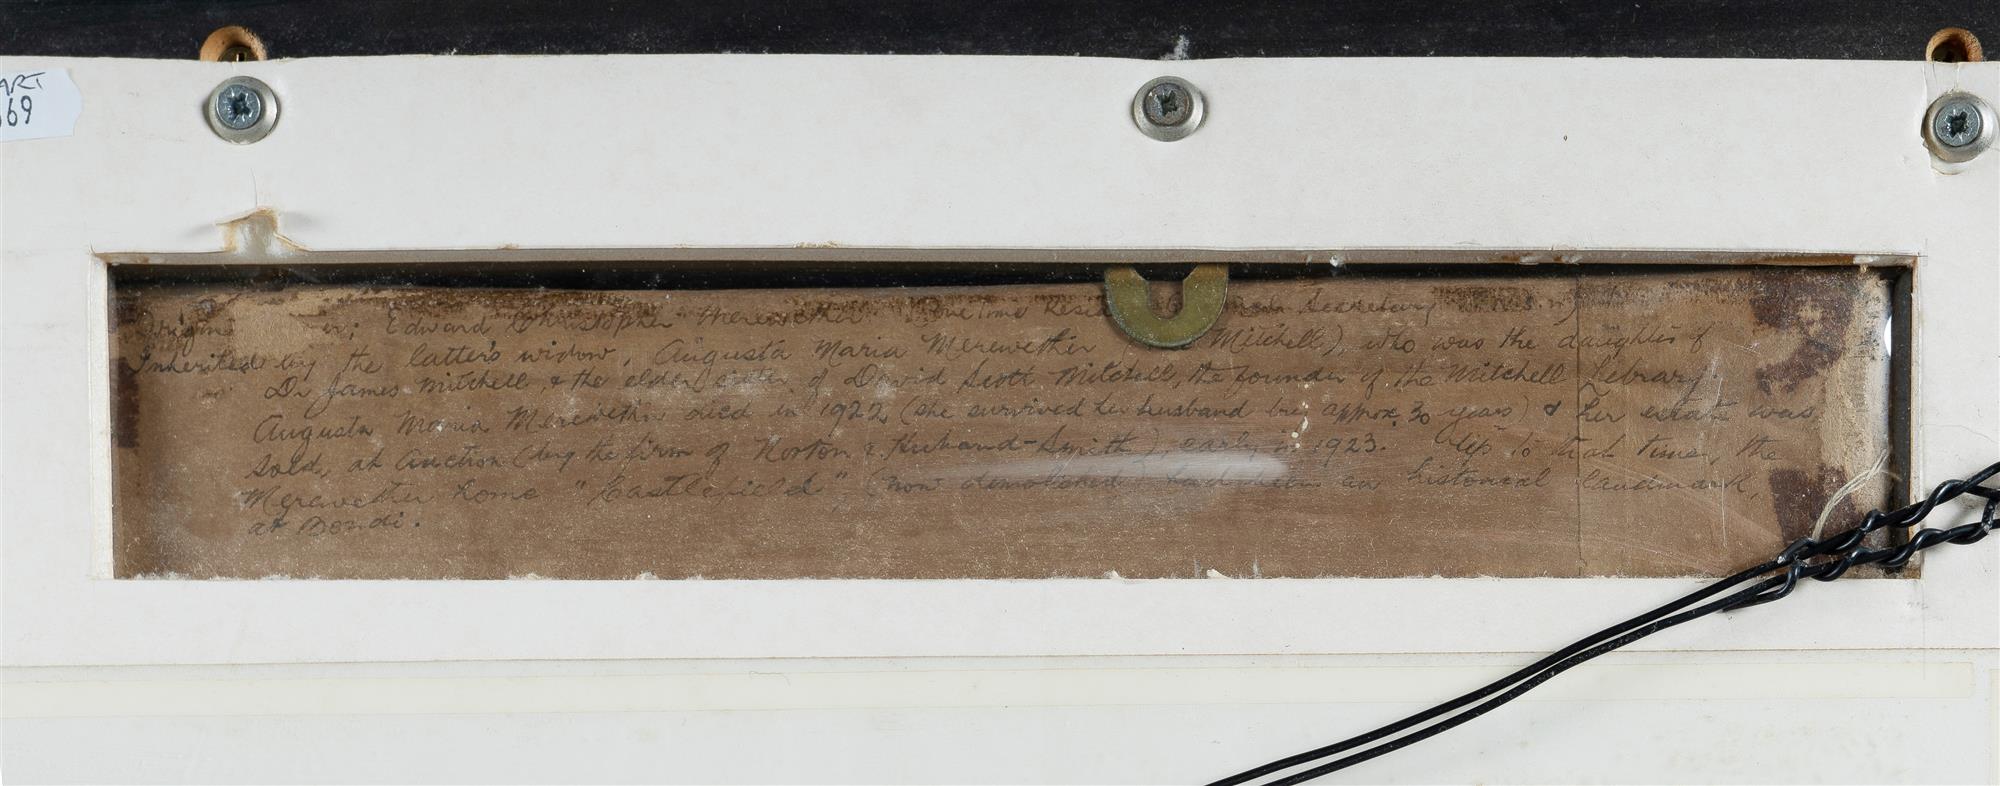 ART
69
Edward Christopher Merewether Secretary
Inherited by the latter's widow, Augusta Maria Merewether Mitchell), who was the daughter of
Dr James Mitchell, & the elder sister of David Scott Mitchell, the founder of the Mitchell Library.
Augusta Maria Merewether died in 1922 (she survived her husband by approx. 30 years) & her estate was
sold, at Auction (by the firm of Norton & Huband-Smith), early in 1923. Up to that time, the
Merewether home "Castlefield", (now demolished) had been an historical landmark,
at Bondi.